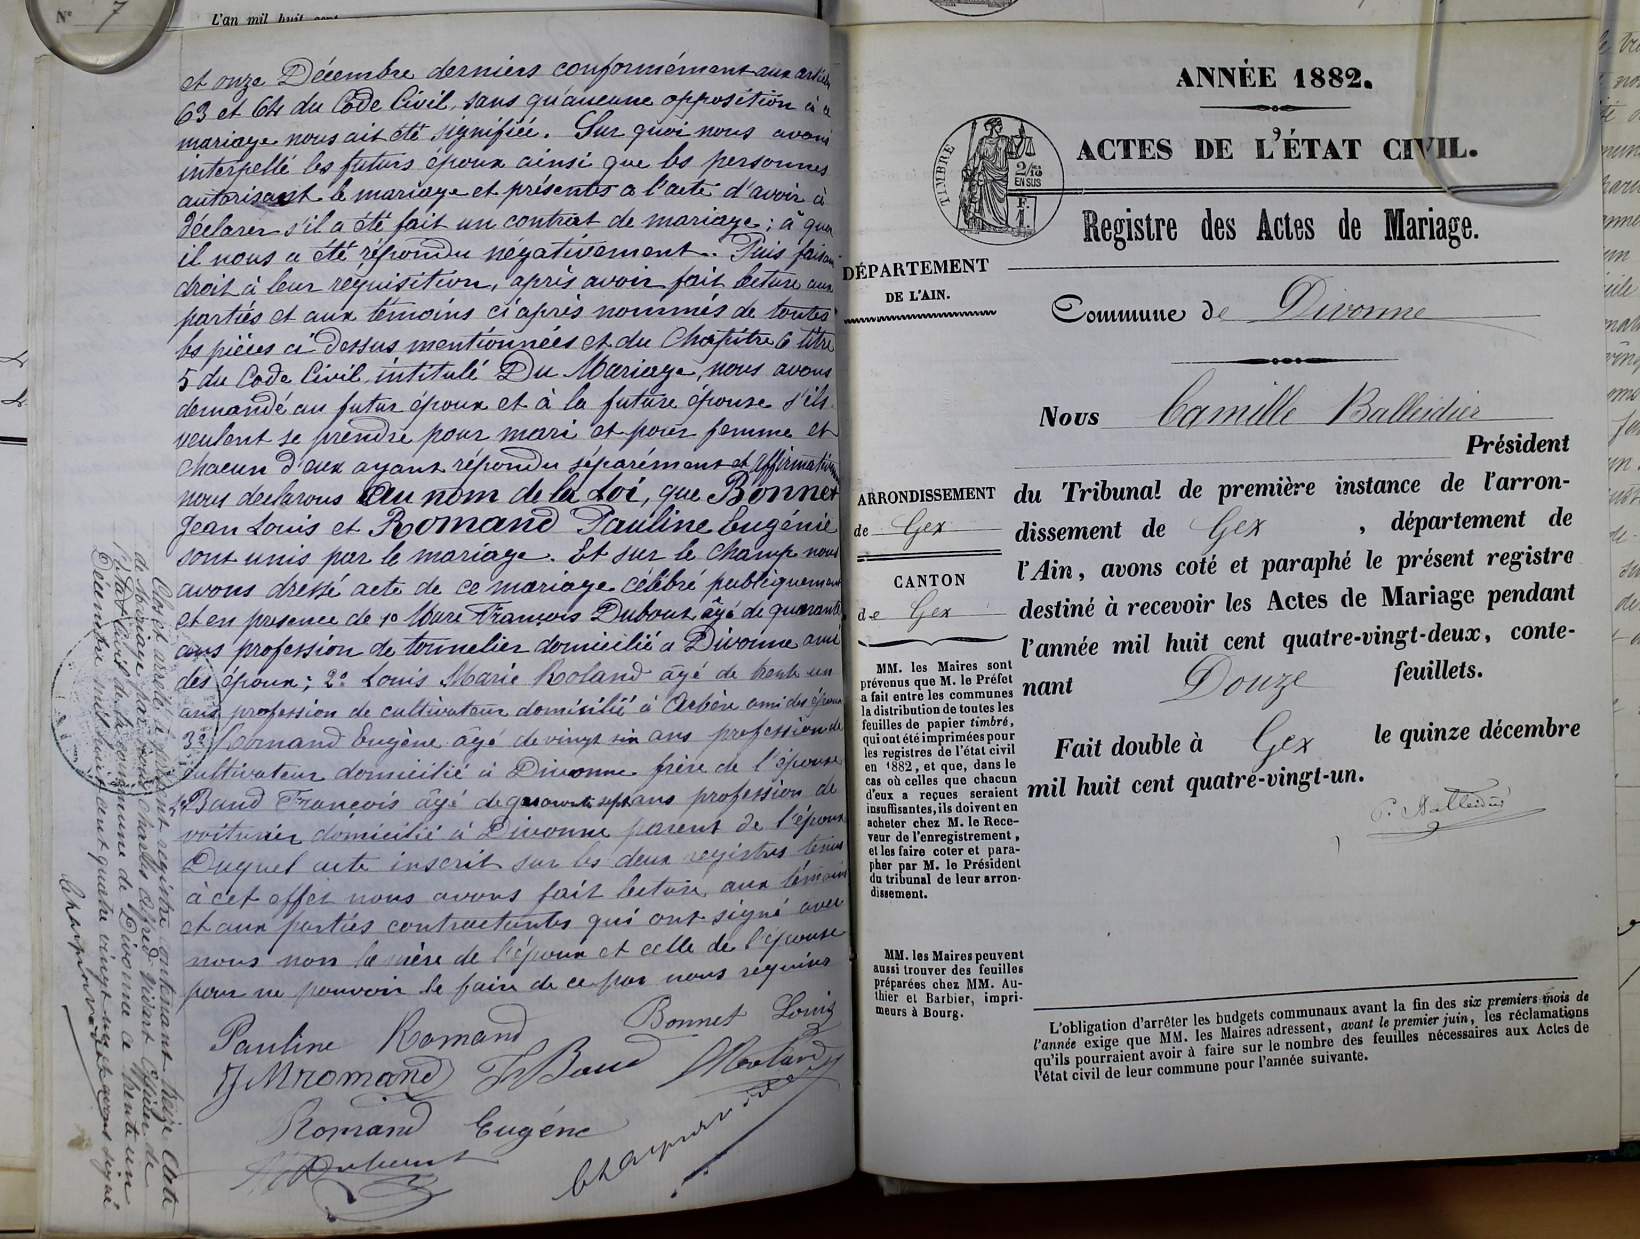 N° 7
L'an mil huit cent
et onze Décembre derniers conformément aux articles
63 et 64 du Code Civil, sans qu'aucune opposition à ce
mariage nous ait été signifiée. Sur quoi nous avons
interpellé les futurs époux ainsi que les personnes
autorisant le mariage et présentes à l'acte d'avoir à
déclarer s'il a été fait un contrat de mariage ; à quoi
il nous a été répondu négativement. Puis faisant
droit à leur réquisition, après avoir fait lecture aux
parties et aux témoins ci après nommés de toutes
les pièces ci dessus mentionnées et du Chapitre 6 titre
5 du Code Civil intitulé Du Mariage, nous avons
demandé au futur époux et à la future épouse s'ils
veulent se prendre pour mari et pour femme et
chacun d'eux ayant répondu séparément et affirmativement
nous déclarons au nom de la Loi, que Bonnet
Jean Louis et Romand Pauline Eugénie
sont unis par le mariage. Et sur le champ nous
avons dressé acte de ce mariage célébré publiquement
et en présence de 1° Marc François Dubout âgé de quarante
ans profession de tonnelier domicilié à Divonne ami
des époux ; 2° Louis Marie Roland âgé de trente un
ans profession de cultivateur domicilié à Arbère ami des époux
3° Romand Eugène âgé de vingt six ans profession de
cultivateur domicilié à Divonne frère de l'épouse
4° Baud François âgé de quarante sept ans profession de
voiturier domicilié à Divonne parent de l'époux
Duquel acte inscrit sur les deux registres tenus
à cet effet nous avons fait lecture aux témoins
et aux parties contractantes qui ont signé avec
nous non la mère de l'époux et celle de l'épouse
pour ne pouvoir le faire de ce par nous requises
Pauline Romand Bonnet Louis
J M romand F Baud L Roland
Romand Eugéne
Dubout
Clos et arrêté le présent registre contenant treize Actes
de Mariage par nous Charles Alfred officier de
l'état civil de la commune de Divonne ce trente un
Décembre mil huit cent quatre vingt un et avons signé
ANNÉE 1882.
ACTES DE L'ÉTAT CIVIL.
TIMBRE
2/10
EN SUS
Registre des Actes de Mariage.
DÉPARTEMENT
DE L'AIN.
Commune de Divonne
Nous Camille Balleidier
Président
ARRONDISSEMENT
de Gex
CANTON
de Gex
du Tribunal de première instance de l'arron-
dissement de Gex , département de
l'Ain, avons coté et paraphé le présent registre
destiné à recevoir les Actes de Mariage pendant
l'année mil huit cent quatre-vingt-deux, conte-
nant Douze feuillets.
Fait double à Gex le quinze décembre
mil huit cent quatre-vingt-un.
C. Balleidier
MM. les Maires sont
prévenus que M. le Préfet
a fait entre les communes
la distribution de toutes les
feuilles de papier timbré,
qui ont été imprimées pour
les registres de l'état civil
en 1882, et que, dans le
cas où celles que chacun
d'eux a reçues seraient
insuffisantes, ils doivent en
acheter chez M. le Rece-
veur de l'enregistrement,
et les faire coter et para-
pher par M. le Président
du tribunal de leur arron-
dissement.
MM. les Maires peuvent
aussi trouver des feuilles
préparées chez MM. Au-
thier et Barbier, impri-
meurs à Bourg.
L'obligation d'arrêter les budgets communaux avant la fin des six premiers mois de
l'année exige que MM. les Maires adressent, avant le premier juin, les réclamations
qu'ils pourraient avoir à faire sur le nombre des feuilles nécessaires aux Actes de
l'état civil de leur commune pour l'année suivante.